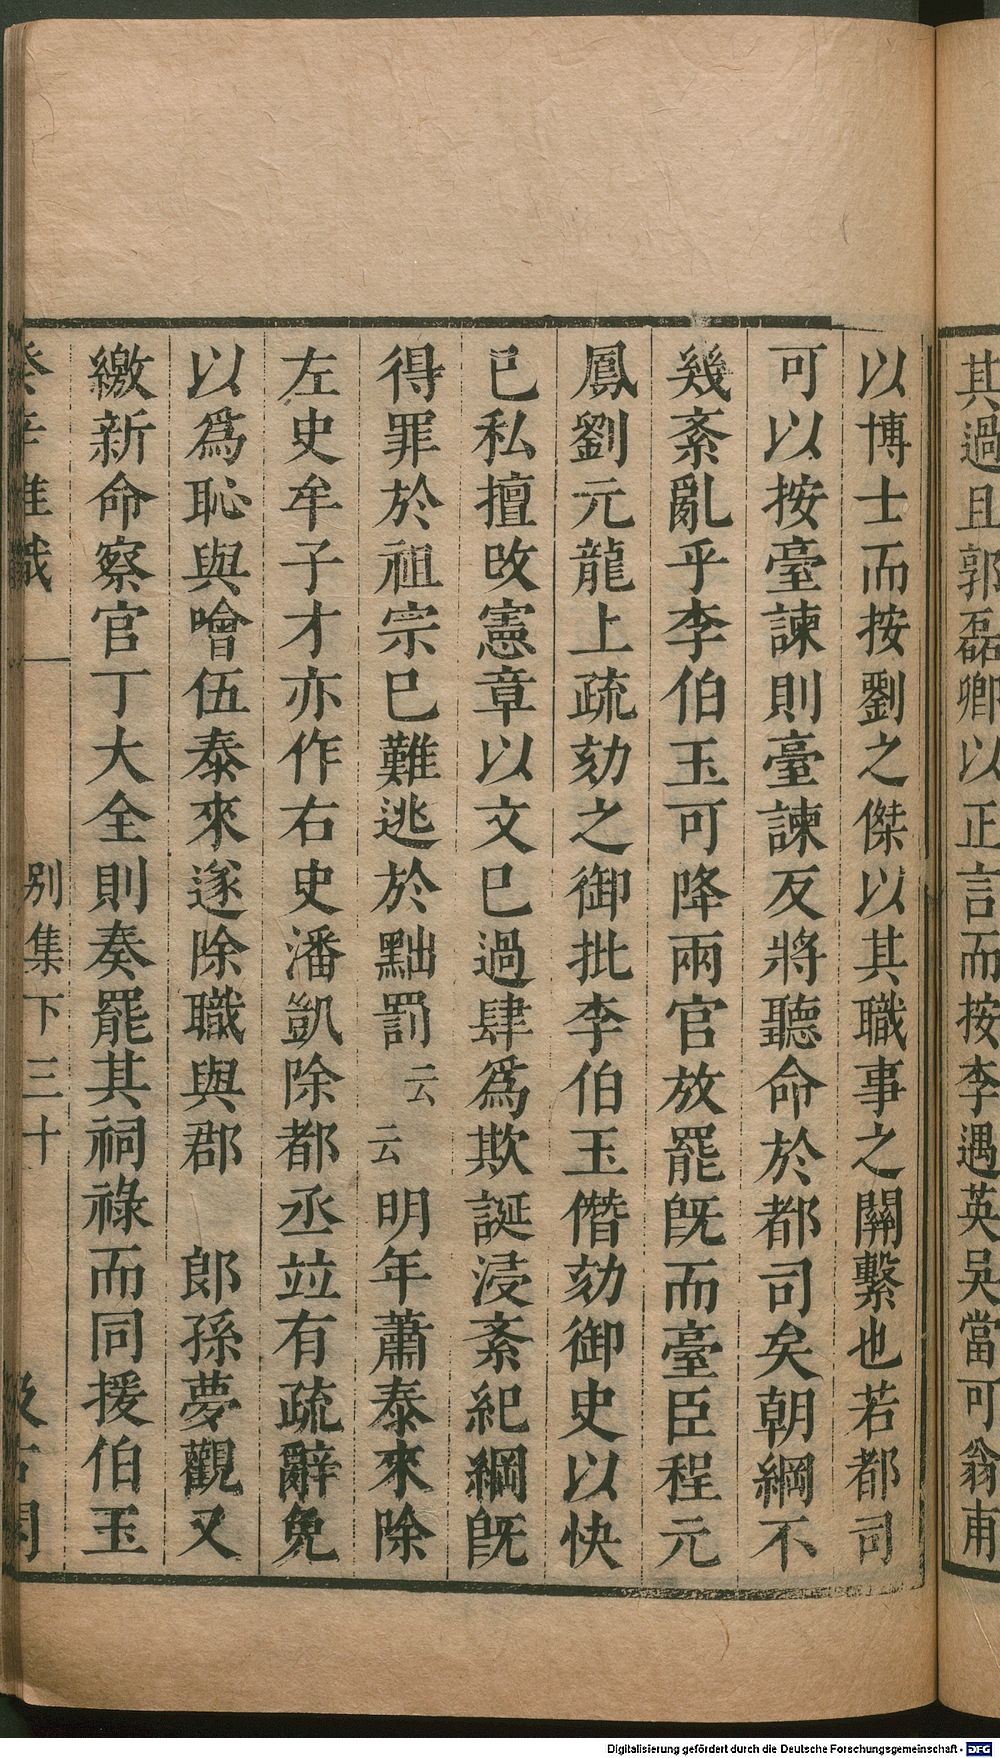 其過且郭磊卿以正言而按李遇英吳當可翁甫
以博士而按劉之傑以其職事之關繫也若都司
可以按臺諫則臺諫反將聽命於都司矣朝綱不
幾紊亂乎李伯玉可降兩官放罷旣而臺臣程元
鳳劉元龍上疏劾之御批李伯玉僭劾御史以快
已私擅改憲章以文已過肆爲欺誕浸紊紀綱旣
得罪於祖宗已難逃於黜罰云云明年蕭泰來除
左史牟子才亦作右史潘凱除都丞竝有疏辭免
以爲恥與噲伍泰來遂除職與郡 郎孫夢觀又
繳新命察官丁大全則奏罷其祠祿而同援伯玉
癸辛雜識
別集下三十
汲古閣
Digitalisierung gefördert durch die Deutsche Forschungsgemeinschaft - DFG